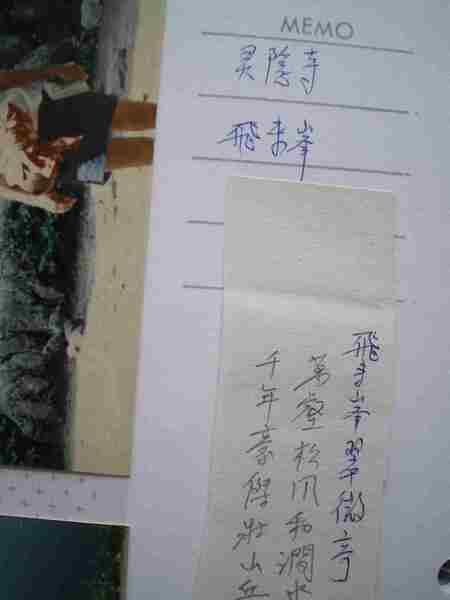 MEMO
灵隐寺
飛来峯
飛来峯翠微亭
萬壑松风和澗水
千年豪傑壮山丘